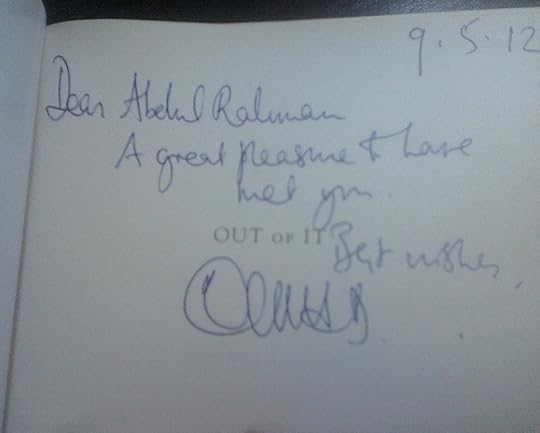 9.5.12
Dear Abdul Rahman
A great pleasure to have
met you.
OUT OF IT
Best wishes,